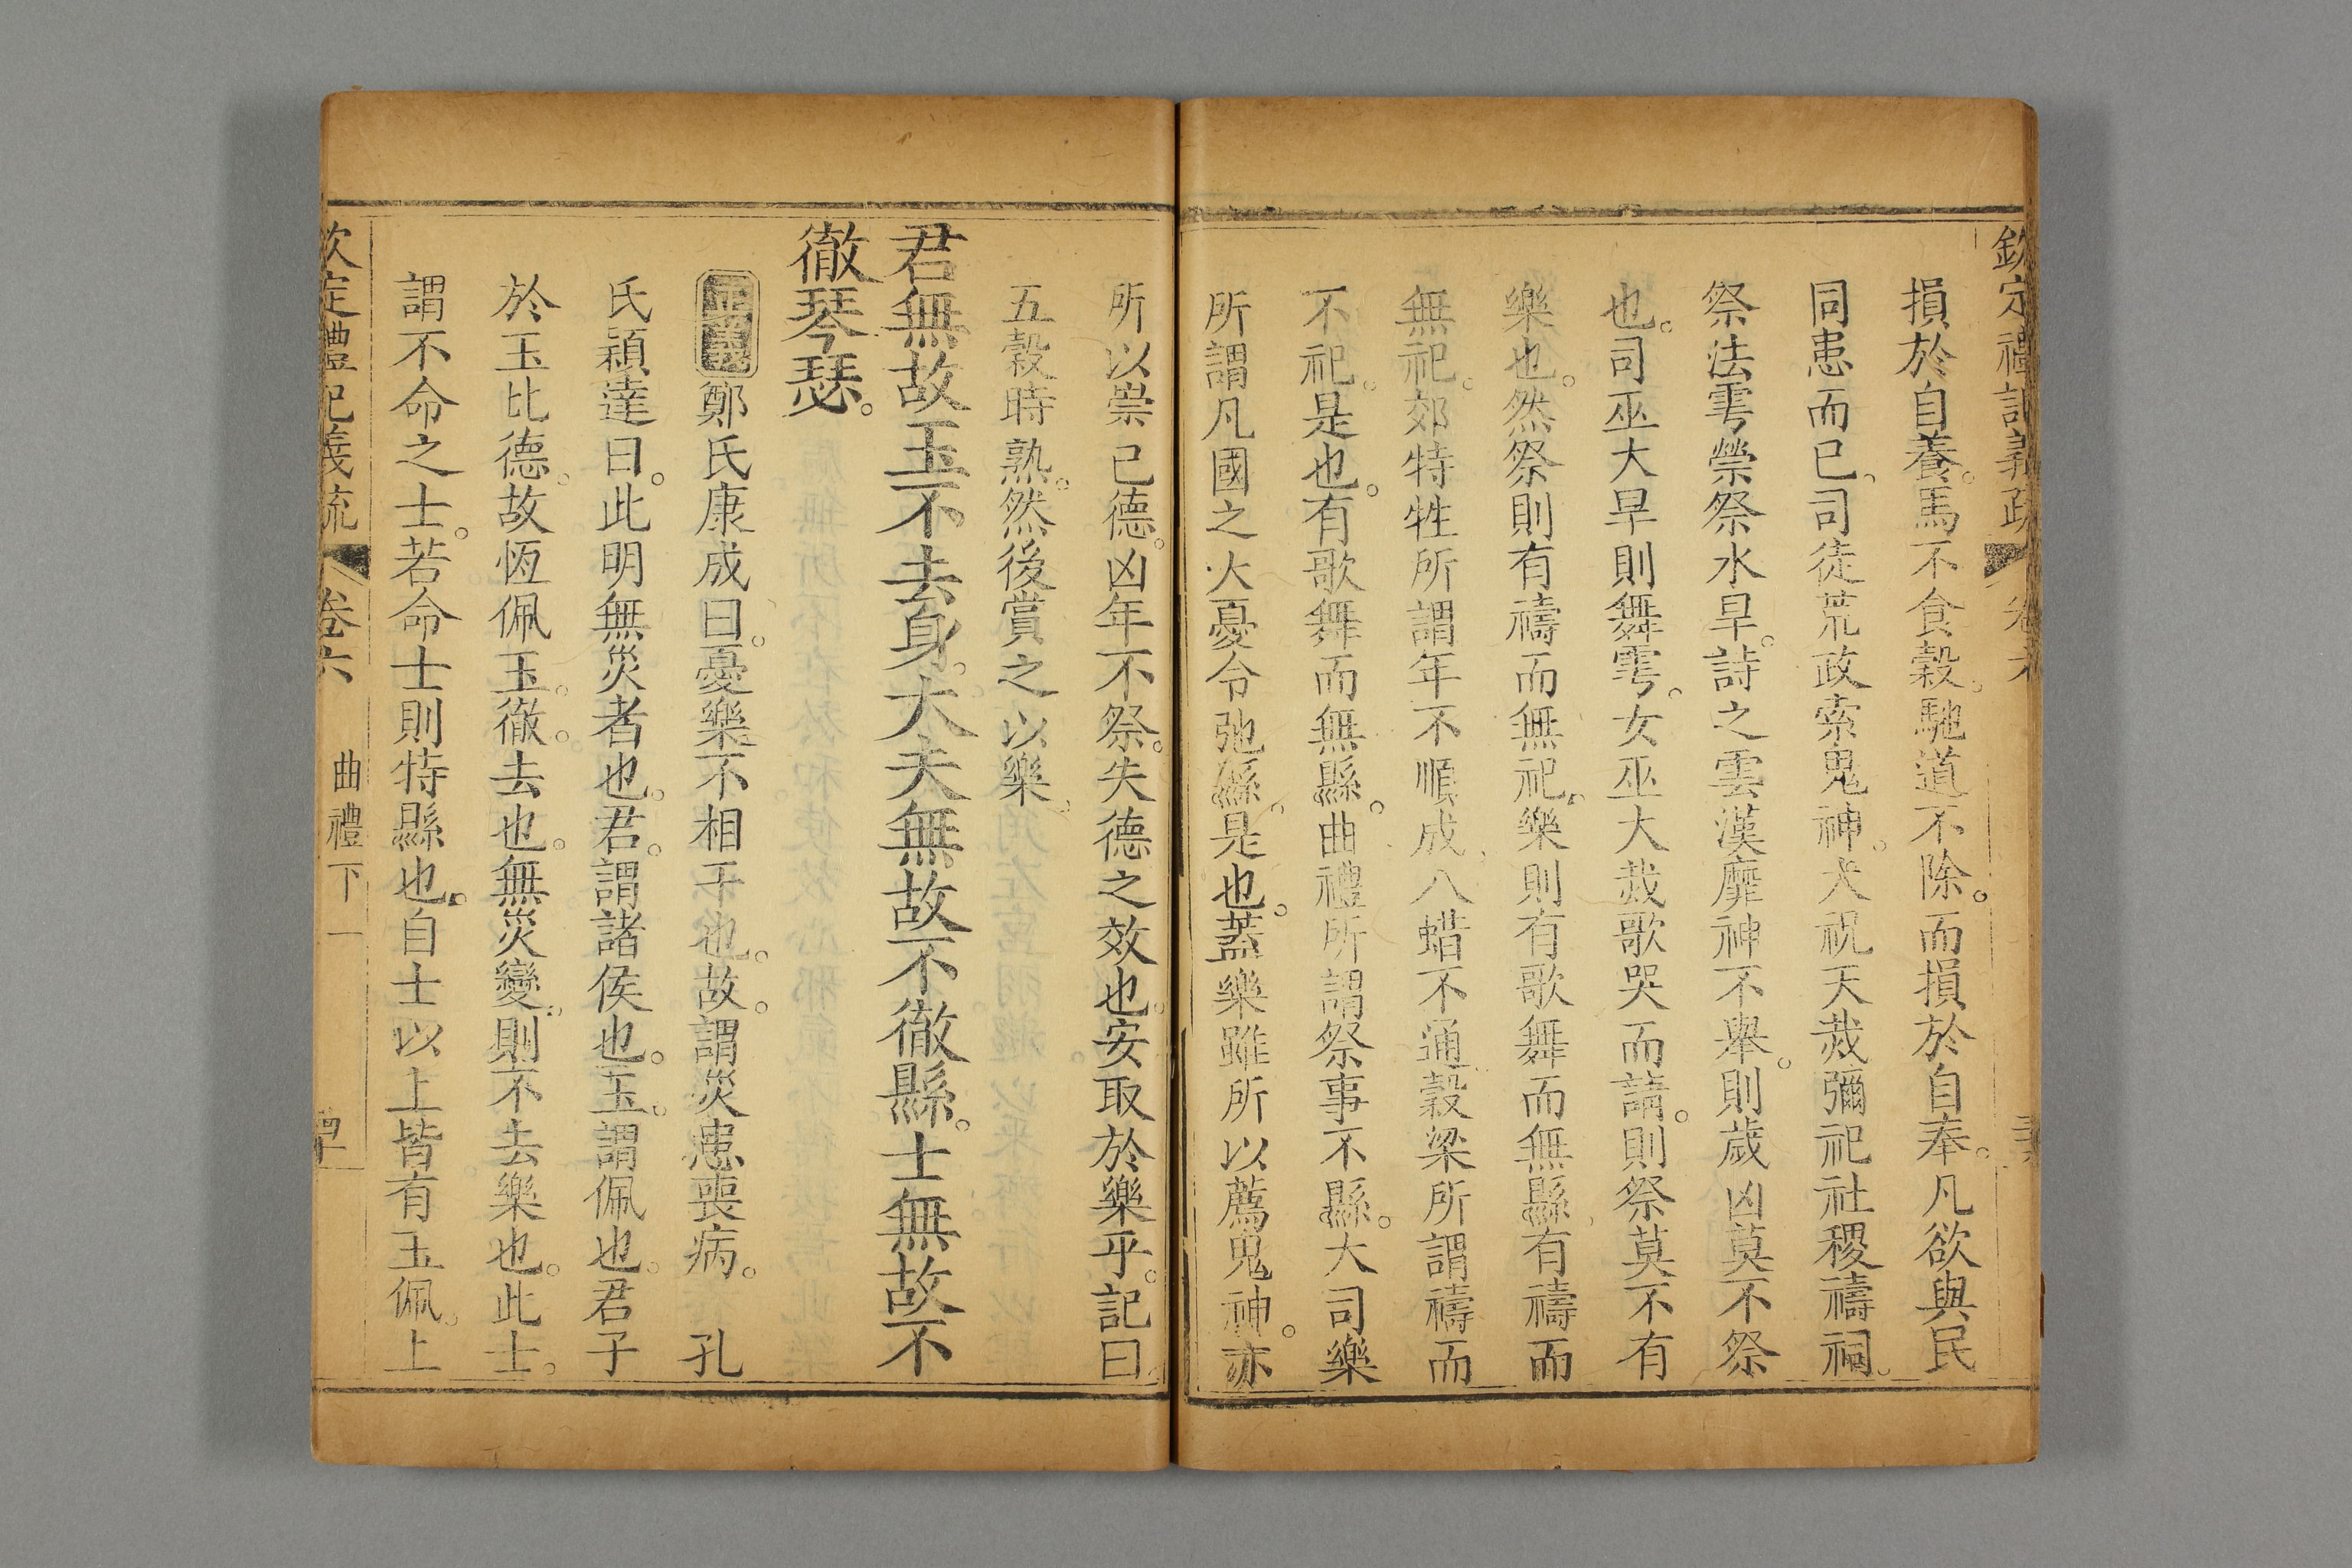 欽定禮記義疏 卷六
損於自養。馬不食穀。馳道不除。而損於自奉。凡欲與民
同患而已。司徒荒政索鬼神。大祝天烖彌祀社稷禱祠。
祭法雩禜祭水旱。詩之雲漢靡神不舉。則歲凶莫不祭
也。司巫大旱則舞雩。女巫大烖歌哭而請。則祭莫不有
樂也。然祭則有禱而無祀。樂則有歌舞而無縣。有禱而
無祀。郊特牲所謂年不順成。八蜡不通。穀梁所謂禱而
不祀。是也。有歌舞而無縣。曲禮所謂祭事不縣。大司樂
所謂凡國之大憂令弛縣。是也。蓋樂雖所以薦鬼神。亦
所以崇已德。凶年不祭。失德之效也。安取於樂乎。記曰。
五穀時熟。然後賞之以樂。
君無故玉不去身。大夫無故不徹縣。士無故不
徹琴瑟。
正義 鄭氏康成曰。憂樂不相干也。故。謂災患喪病。 孔
氏穎達曰。此明無災者也。君。謂諸侯也。玉。謂佩也。君子
於玉比德。故恆佩玉。徹。去也。無災變。則不去樂也。此士。
謂不命之士。若命士則特縣也。自士以上皆有玉佩。上
欽定禮記義疏 卷六 曲禮下一